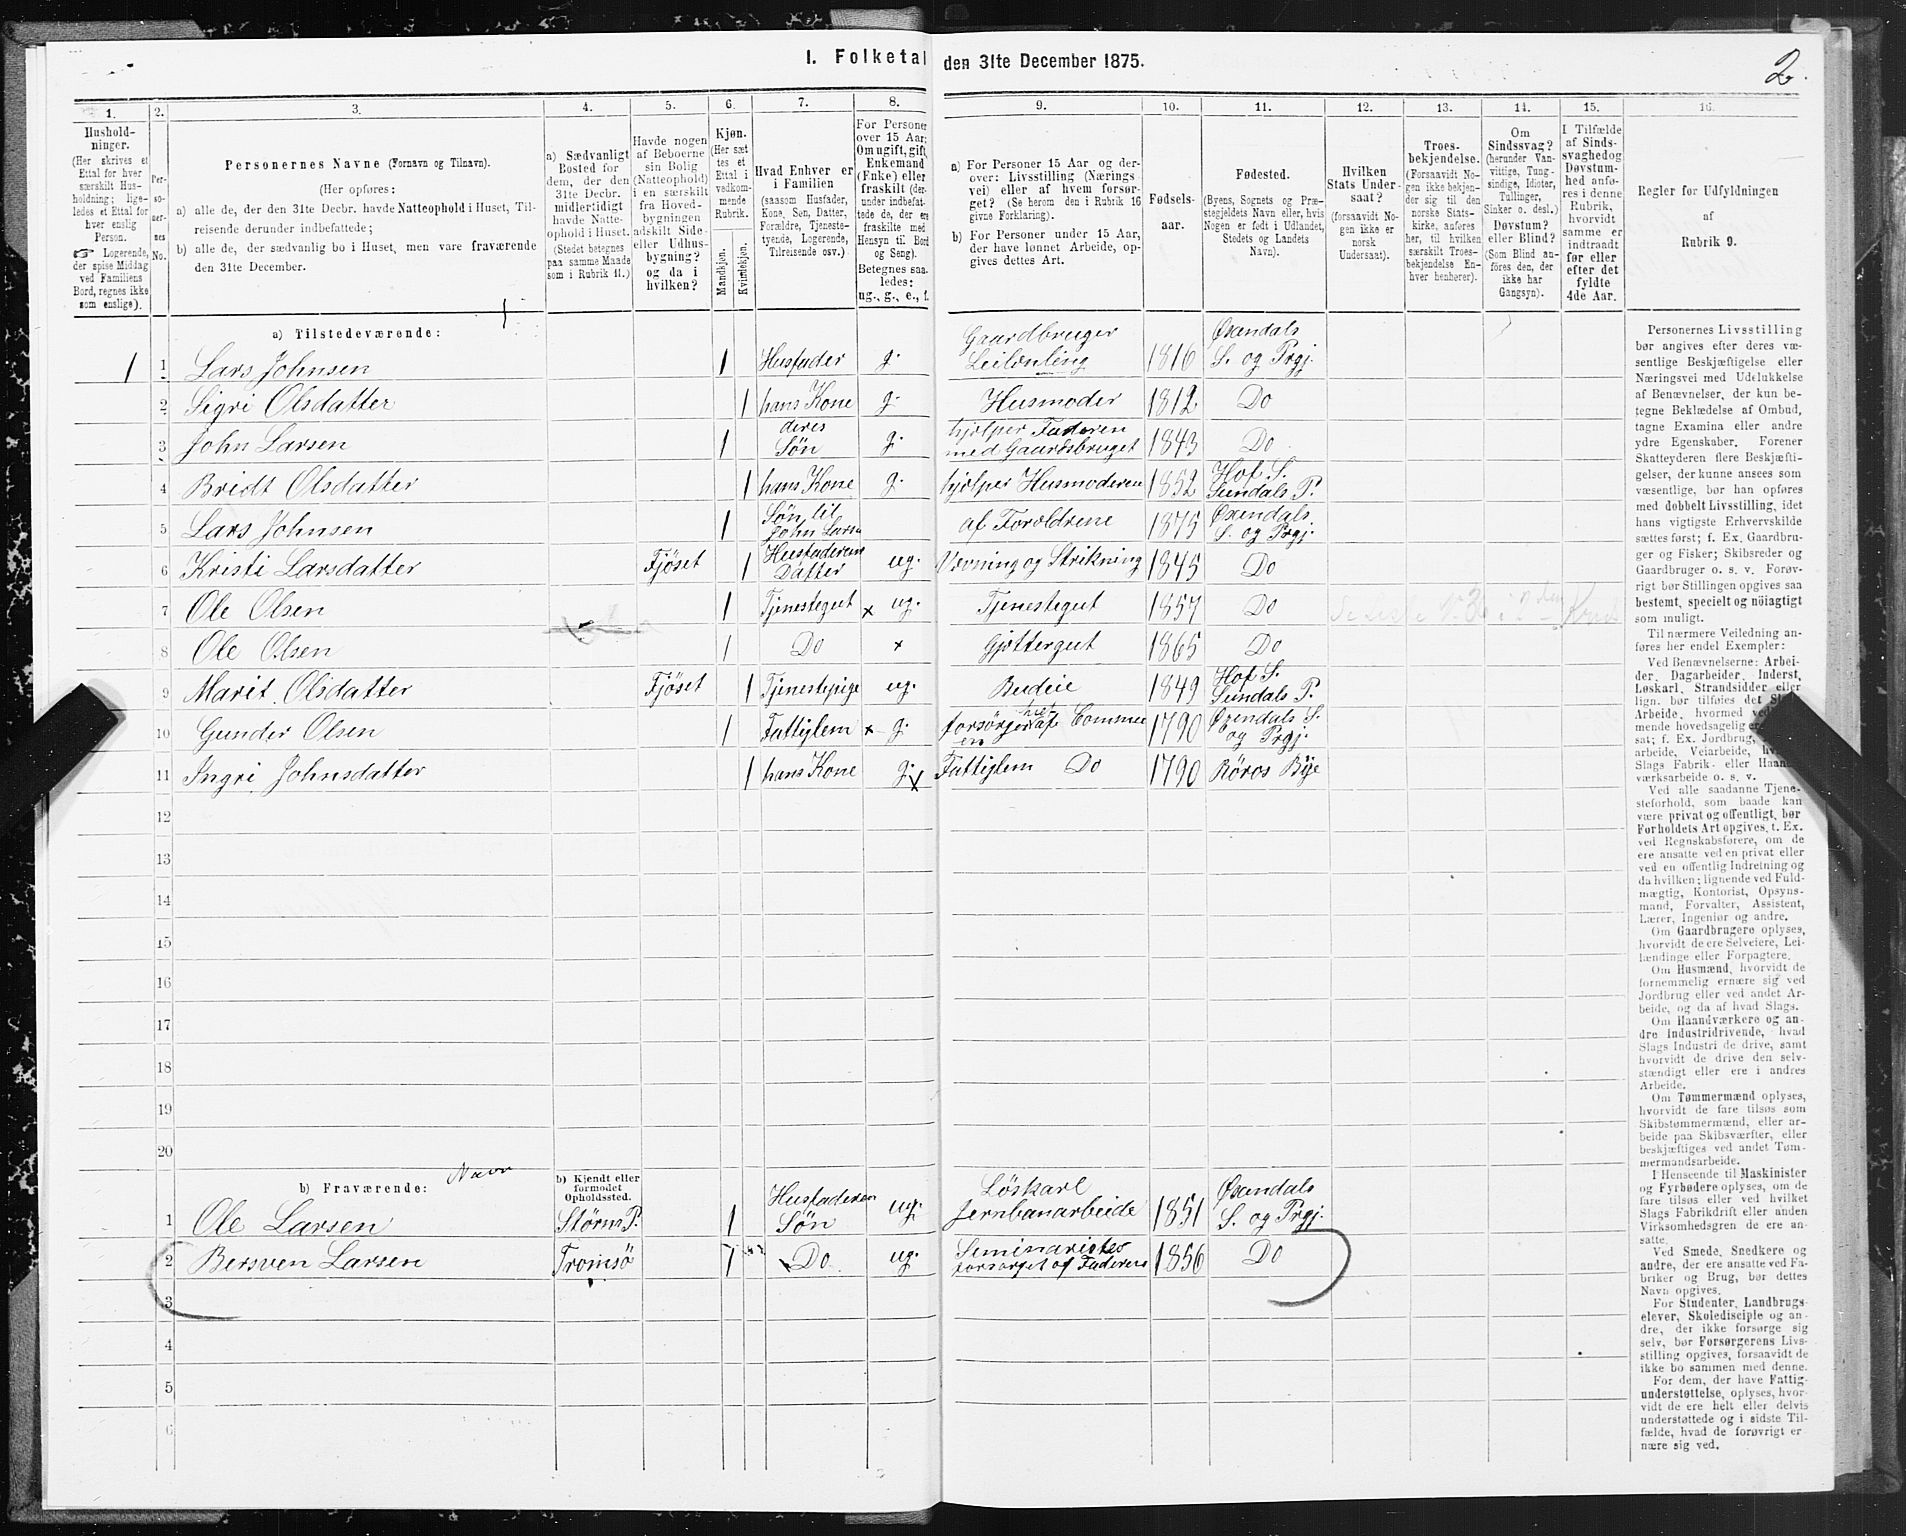 I. Folketal den 31te December 1875.
2.
1. 2. 3. 4. 5. 6. 7. 8. 9. 10. 11. 12. 13. 14. 15. 16.
Hushold-
ninger.
(Her skrives et
Ettal for hver
særskilt Hus-
holdning; lige-
ledes et Ettal for
hver enslig
Person.
☞ Logerende,
der spise Middag
ved Familiens
Bord, regnes ikke
som enslige).
Per-
so-
ner-
nes
No.
Personernes Navne (Fornavn og Tilnavn).
(Her opføres:
a) alle de, der den 31te Decbr. havde Natteophold i Huset, Til-
reisende derunder indbefattede;
b) alle de, der sædvanlig bo i Huset, men vare fraværende
den 31te December.
a) Sædvanligt
Bosted for
dem, der den
31te Decbr.
midlertidigt
havde Natte-
ophold i Huset.
(Stedet betegnes
paa samme Maade
som i Rubrik 11.)
Havde nogen
af Beboerne
sin Bolig
(Natteophold)
i en særskilt
fra Hoved-
bygningen
adskilt Side-
eller Udhus-
bygning?
og da i
hvilken?
Kjøn.
(Her sæt-
tes et
Ettal i
vedkom-
mende
Rubrik.
Mandkjøn.
Kvindekjøn.
Hvad Enhver er
i Familien
(saasom Husfader,
Kone, Søn, Datter,
Forældre, Tjeneste-
tyende, Logerende,
Tilreisende osv.)
For Personer
over 15 Aar:
Om ugift, gift,
Enkemand
(Enke) eller
fraskilt (der-
under indbefat-
tede de, der ere
fraskilte med
Hensyn til Bord
og Seng).
Betegnes saa-
ledes:
ug., g., e., f.
a) For Personer 15 Aar og der-
over: Livsstilling (Nærings-
vei) eller af hvem forsør-
get? (Se herom den i Rubrik 16
givne Forklaring).
b) For Personer under 15 Aar,
der have lønnet Arbeide, op-
gives dettes Art.
Fødsels-
aar.
Fødested.
(Byens, Sognets og Præ-
stegjeldets Navn eller, hvis
Nogen er født i Udlandet,
Stedets og Landets
Navn).
Hvilken
Stats Under-
saat?
(forsaavidt No-
gen ikke er
norsk
Undersaat).
Troes-
bekjendelse.
(Forsaavidt No-
gen ikke bekjen-
der sig til den
norske Stats-
kirke, anføres
her, til hvilken
særskilt Troes-
bekjendelse En-
hver henhører).
Om
Sindssvag?
(herunder Van-
vittige, Tung-
sindige, Idioter,
Tullinger,
Sinker o. desl.)
Døvstum?
eller Blind?
(Som Blind an-
føres den, der
ikke har
Gangsyn).
I Tilfælde
af Sinds-
svaghed og
Døvstum-
hed anfø-
res i denne
Rubrik,
hvorvidt
samme er
indtraadt
før eller
efter det
fyldte
4de Aar.
Regler for Udfyldningen
af
Rubrik 9.
a) Tilstedeværende:
1 1 Lars Johnsen 1 Husfader g. Gaardbruger Leilending 1816 Øxendals S. og Prgj.
2 Sigri Olsdatter 1 hans Kone g. Husmoder 1812 Do
3 John Larsen 1 deres Søn g. hjelper Faderen med Gaardsbruget 1843 Do
4 Bridt Olsdatter 1 hans Kone g. hjelper Husmoderen 1852 Hof S. Sundals P.
5 Lars Johnsen 1 Søn til John Larsen af Foreldrene 1875 Øxendals S. og Prgj.
6 Kristi Larsdatter Fjöset 1 Husfaderens Datter ug. Vævning og Strikning 1845 Do
7 Ole Olsen 1 Tjenestegut x ug. Tjenestegut 1857 Do
8 Ole Olsen 1 Do x Gjøttergut 1865 Do
9 Marit Olsdatter Fjöset 1 Tjenestepige ug. Budeie 1849 Hof S. Sundals P.
10 Gunder Olsen 1 Fattiglem x g. forsørges helt af Commuen 1790 Øxendals S. og Prgj.
11 Ingri Johnsdatter 1 hans Kone g. x Fattiglem Do 1790 Röros Bye
12
13
14
15
16
17
18
19
20
Navn
b) Fraværende:
b) Kjendt eller
formodet
Opholdssted.
1 Ole Larsen Störens P. 1 Husfaderens Søn ug. Löskarl Jernbanarbeide 1851 Øxendals S. og Prgj.
2 Bersven Larsen Tromsö 1 Do ug. Seminarister forsørget af Faderens 1856 Do
3
4
5
6
Personernes Livsstilling
bør angives efter deres væ-
sentlige Beskjæftigelse eller
Næringsvei med Udelukkelse
af Benævnelser, der kun be-
tegne Beklædelse af Ombud,
tagne Examina eller andre
ydre Egenskaber. Forener
Skatteyderen flere Beskjæfti-
gelser, der kunne ansees som
væsentlige, bør han opføres
med dobbelt Livsstilling, idet
hans vigtigste Erhvervskilde
sættes først; f. Ex. Gaardbru-
ger og Fisker; Skibsreder og
Gaardbruger o. s. v. Forøv-
rigt bør Stillingen opgives saa
bestemt, specielt og nöiagtigt
som muligt.
Til nærmere Veiledning an-
føres her endel Exempler:
Ved Benævnelserne: Arbei-
der, Dagarbeider, Inderst,
Løskarl, Strandsidder eller
lign. bør tilføies det Slags
Arbeide, hvormed ved
mende hovedsagelig er
sat; f. Ex. Jordbrug,
arbeide, Veiarbeide,
Slags Fabrik- eller Haand-
værksarbeide o. s. v.
Ved alle saadanne Tjene-
steforhold, som baade kan
være privat og offentligt, bør
Forholdets Art opgives, t. Ex.
ved Regnskabsførere, om de
ere ansatte ved en privat eller
ved en offentlig Indretning og
da hvilken; lignende ved Fuld-
mægtig, Kontorist, Opsyns-
mand, Forvalter, Assistent,
Lærer, Ingeniør og andre.
Om Gaardbrugere oplyses,
hvorvidt de ere Selveiere, Lei-
lændinge eller Forpagtere.
Om Husmænd, hvorvidt de
fornemmelig ernære sig ved
Jordbrug eller ved andet Ar-
beide, og da af hvad Slags.
Om Haandværkere og an-
dre Industridrivende, hvad
Slags Industri de drive, samt
hvorvidt de drive den selv-
stændigt eller ere i andres
Arbeide.
Om Tømmermænd oplyses,
hvorvidt de fare tilsøs som
Skibstømmermænd, eller ar-
beide paa Skibsværfter, eller
beskjæftiges ved andet Tøm-
mermandsarbeide.
I Henseende til Maskinister
og Fyrbødere oplyses, om de
fare tilsøs eller ved hvilket
Slags Fabrikdrift eller anden
Virksomhedsgren de ere an-
satte.
Ved Smede, Snedkere og
andre, der ere ansatte ved Fa-
briker og Brug, bør dettes
Navn opgives.
For Studenter, Landbrugs-
elever, Skoledisciple og an-
dre, der ikke forsørge sig
selv, bør Forsørgerens Livs-
stilling opgives, forsaavidt de
ikke bo sammen med denne.
For dem, der have Fattig-
understøttelse, oplyses, hvor-
vidt de ere helt eller delvis
understøttede og i sidste Til-
fælde, hvad de forøvrigt er-
nære sig ved.